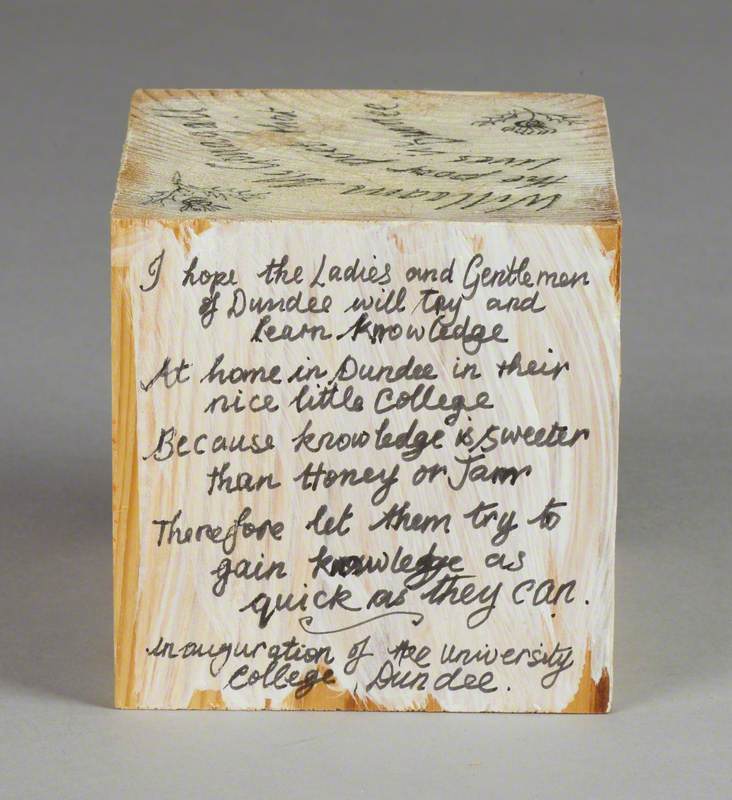 William McGonagall
the poor poet
lives in Dundee
I hope the Ladies and Gentlemen
of Dundee will try and
learn knowledge
At home in Dundee in their
nice little College
Because knowledge is sweeter
than Honey or Jam
Therefore let them try to
gain knowledge as
quick as they can.
inauguration of the University
College, Dundee.